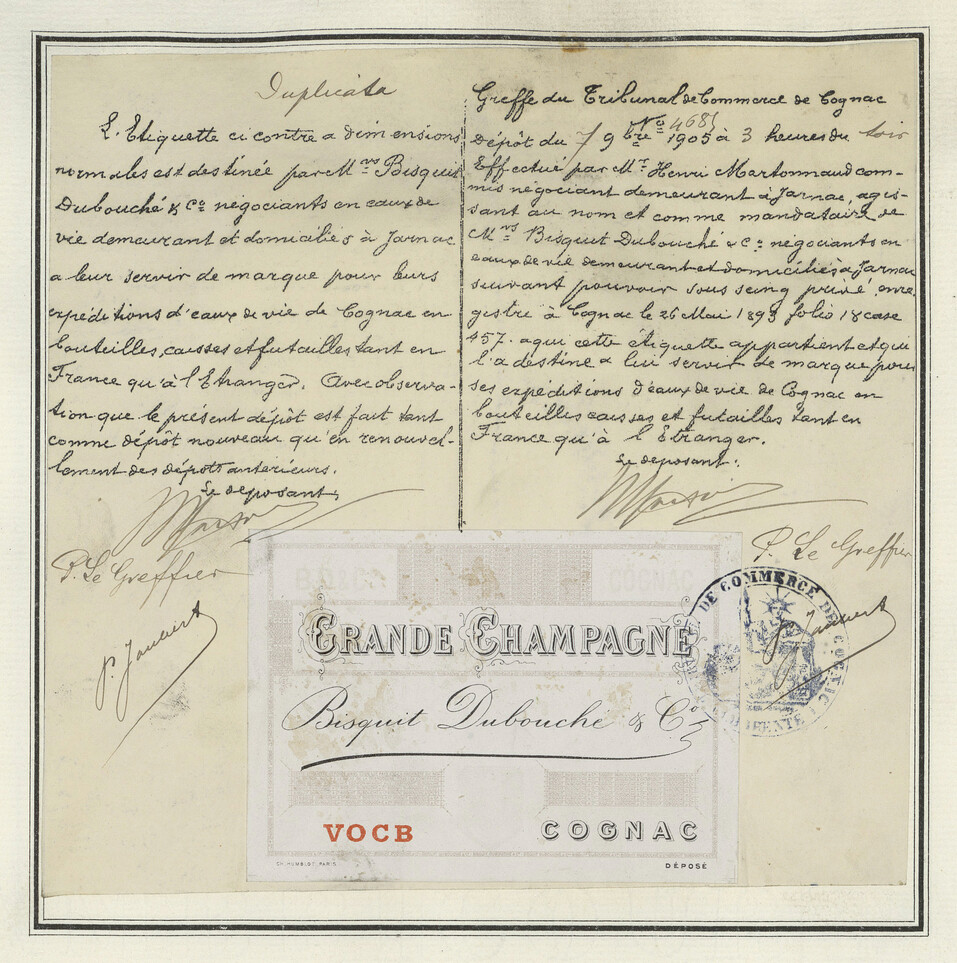 Duplicata
L. Etiquette ci contre a dimensions
normales est destinée par Mrs Bisquit
Dubouché & Co négociants en eaux de
vie demeurant et domiciliés à Jarnac
a leur servir de marque pour leurs
expéditions d'eaux de vie de Cognac en
bouteilles, caisses et futailles tant en
France qu'à l'Etranger. Avec observa-
tion que le présent dépôt est fait tant
comme dépôt nouveau qu'en renouvel-
lement des dépots antérieurs.
Le deposant,
P. Le Greffier
P. Jaubert
Greffe du Tribunal de Commerce de Cognac
No 4681
Dépôt du 7 9bre 1905 à 3 heures du soir
Effectué par Mr Henri Martonnaud com-
mis négociant demeurant à Jarnac, agis-
sant au nom et comme mandataire de
Mrs Bisquit Dubouché & Co négociants en
eaux de vie demeurant et domiciliés à Jarnac
suivant pouvoir sous seing privé enre
gistré à Cognac le 26 Mai 1893 folio 18 case
457. a qui cette étiquette appartient et qui
l'a destine a lui servir de marque pour
ses expéditions d'eaux de vie de Cognac en
bouteilles caisses et futailles tant en
France qu'à l'Etranger.
Le deposant:
P. Le Greffier
Jaubert
DE COMMERCE DE COGNAC
CHARENTE
GRANDE CHAMPAGNE
Bisquit Dubouché & Co
VOCB COGNAC
CH. HUMBLOT PARIS DÉPOSÉ